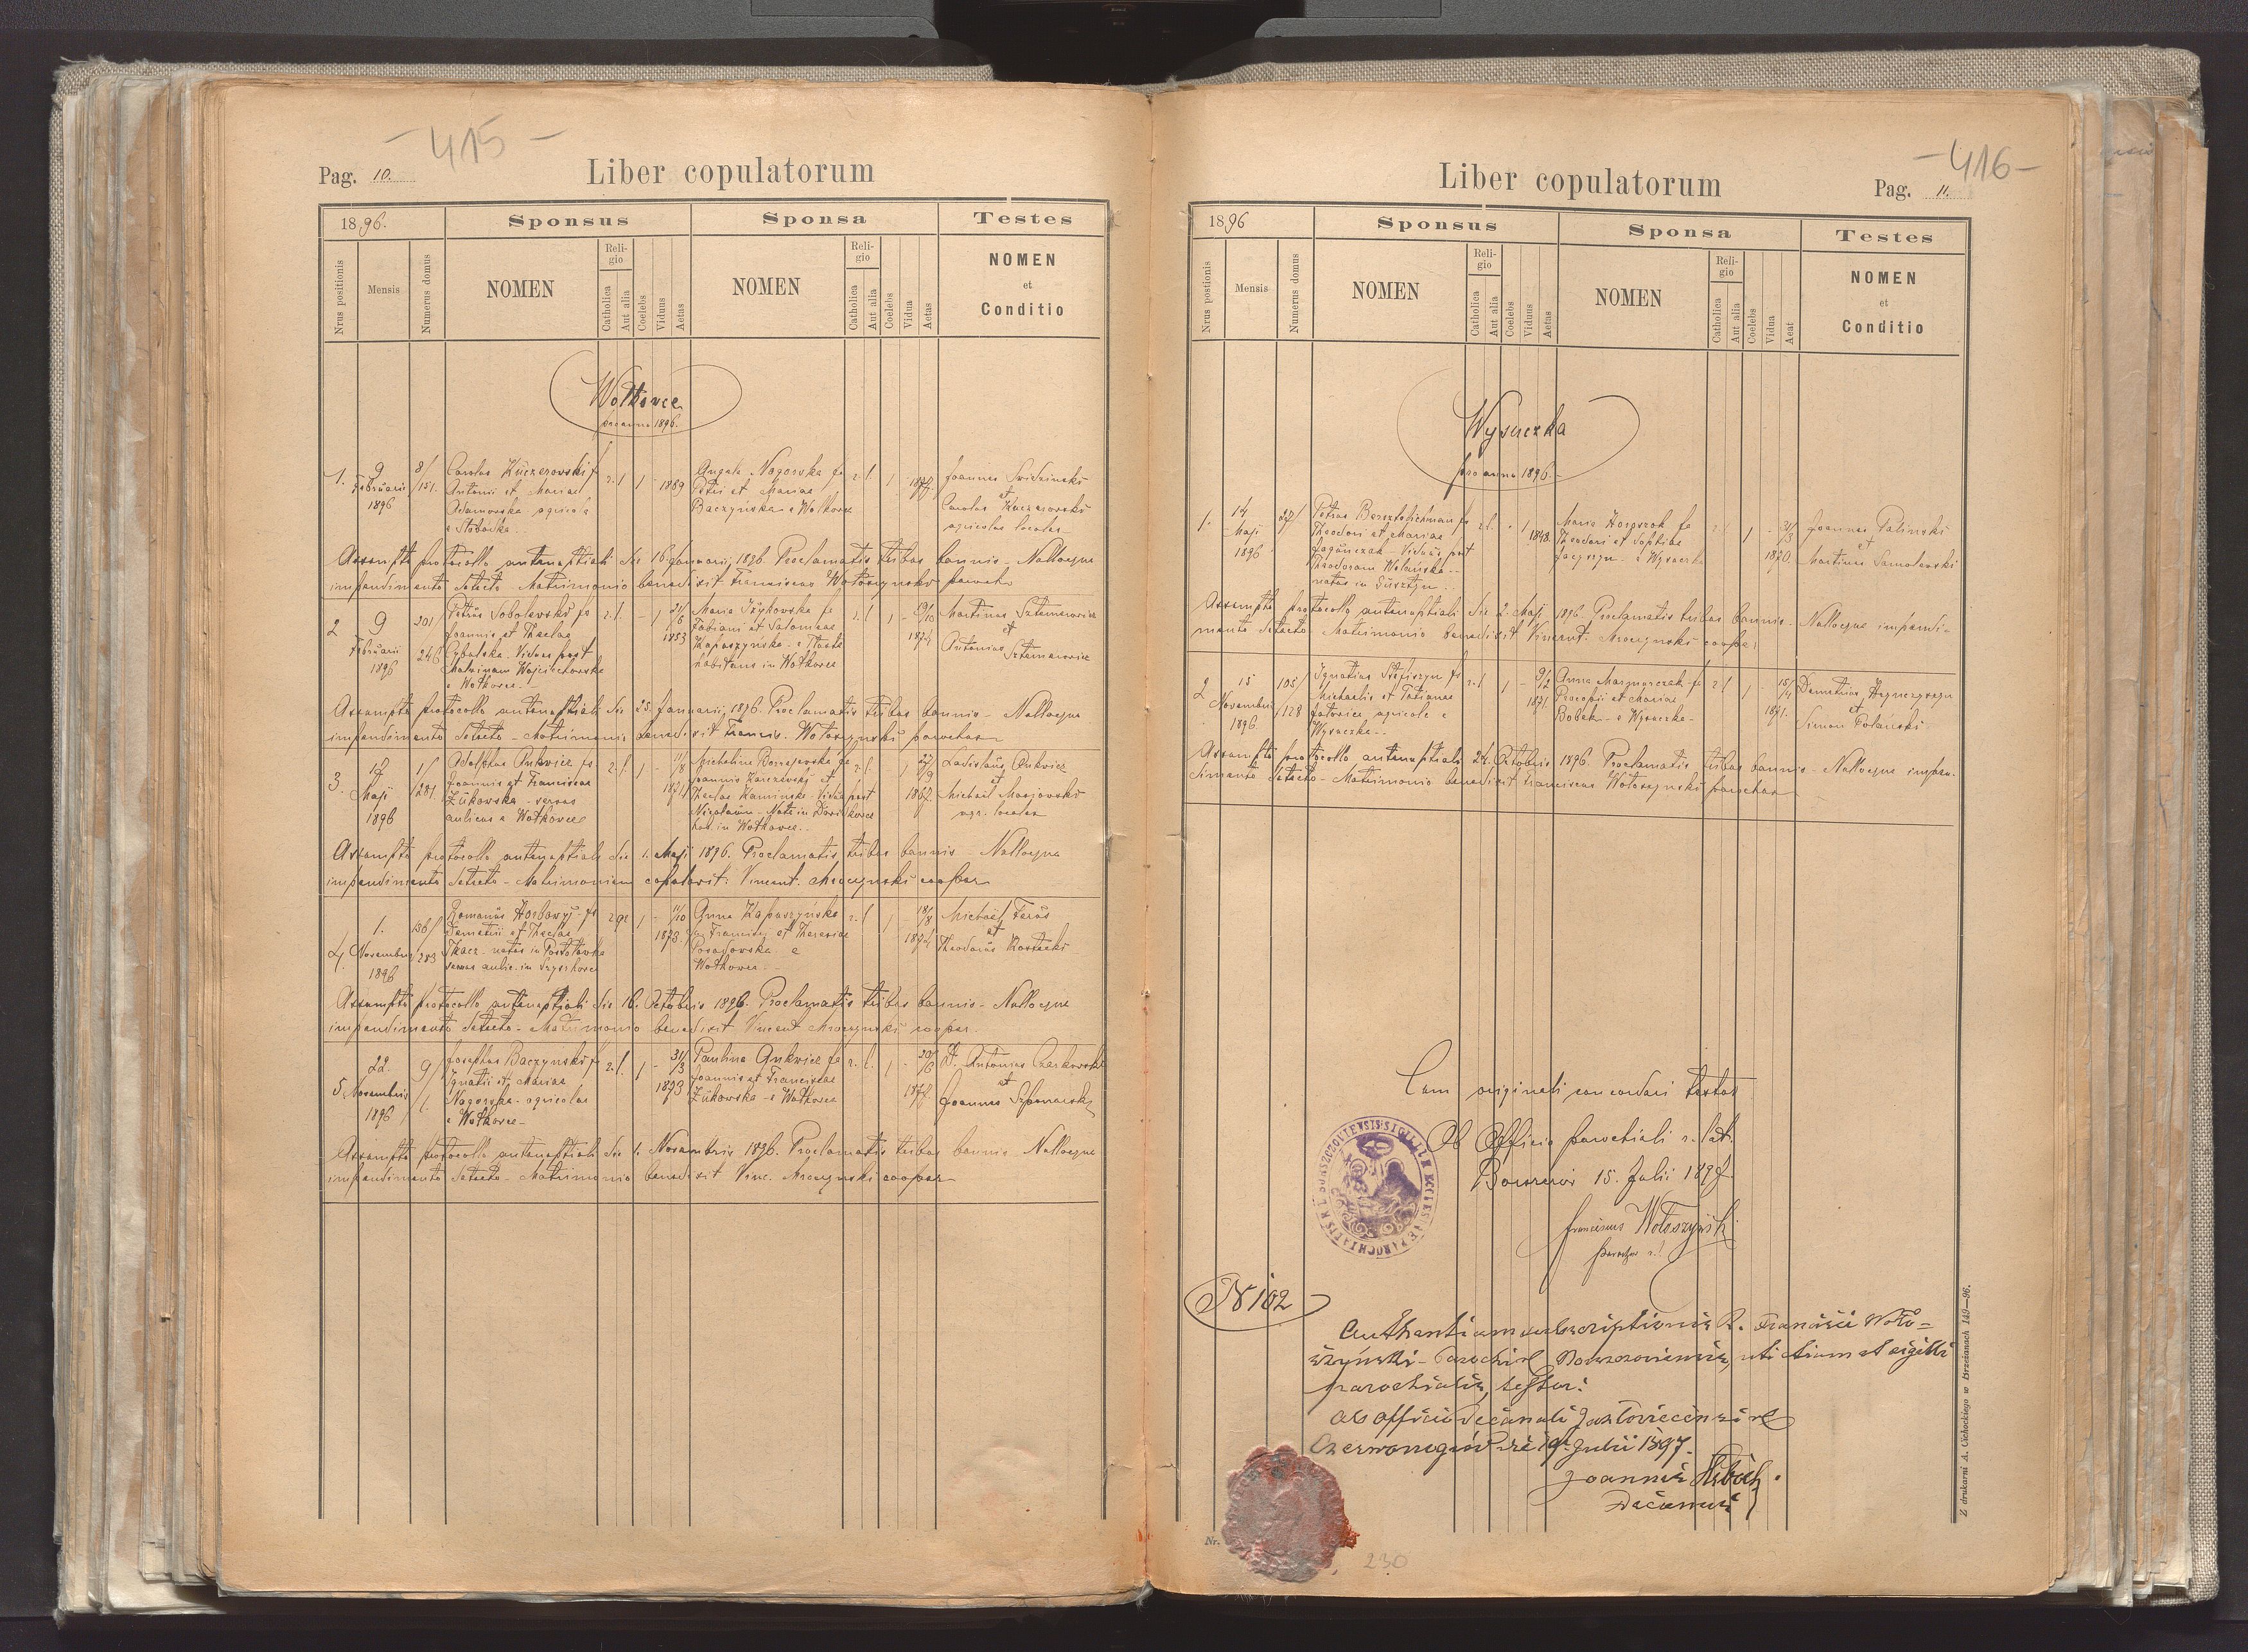 - 415 -
Pag. 10.
Liber copulatorum
1896.
Sponsus
Sponsa
Testes
Nrus positionis
Mensis
Numerus domus
NOMEN
Religio
Catholica
Aut alia
Coelebs
Viduus
Aetas
NOMEN
Religio
Catholica
Aut alia
Coelebs
Vidua
Aetas
NOMEN
et
Conditio
Wołkowce
pro anno 1896.
1.
9
Februarii
1896
8/
151.
Carolus Kuczerowski f.
Antonii et Mariae
Adamowska agricola
r. l
1
-
1889
Angela Nogorska fa
Petri et Mariae
Baczyńska e Wołkowce
r. l
1
1877.
Joannes Swidzinski
et
Carolus Kuczerowski
agricolae locales
Assumpto protocollo antenuptiali die 16 Januarii 1896. Proclamatis tribus bannis - Nulloque
impendimento detecto - Matrimonio benedixit Franciscus Wołoszynski paroch
2
9
Februarii
1896
201
246
Petrus Sobolewski fs
Joannis et Theclae
Cybulska - Viduus post
Malvinam Wojciechowska
e Wołkowce -
r. l.
-
1
21/6
1853
Maria Iżykowska fa
Fabiani et Salomeae
Kapuszyńska - e Tłuste
habitans in Wołkowce
r. l
1
-
9/10
1874
Martinus Sztemerowicz
et
Antonius Sztemerowicz
Assumpto protocollo antenuptiali die 25. Januarii 1896. Proclamatis tribus bannis - Nulloque
impendimento detecto - Matrimonio benedixit Francis. Wołoszynski parochus
3.
Maji
1896
1/
201.
Adolphus Ankwicz fs
Joannis et Franciscae
Żukowska - servus
aulicus e Wołkowce
r. l.
1
-
11/8
1871
Joannis Karczewski et
Theclae Kaminska - Vidua post
hab. in Wołkowce..
r. l.
1
27/9
1867.
Ladislaus Ankwicz
et
Michael Masiowski
agr. locales
Assumpto protocollo antenuptiali die 1. Maji 1896. Proclamatis tribus bannis - Nulloque
impendimento detecto - Matrimonium copulavit: Vincent. Mroczynski cooper
4.
1.
Novembris
1896
136/
283
Romanus Horbowyj - fs
Demetrii et Theclae
Tkacz - natus in Postołówka
servus aulic. in
r. gr
1
-
11/10
1873.
Anna Kapuszyńska
fa Francisci et Theresiae
Posadowska e
Wołkowce
r. l
1
-
18/8
1874
Michael Feruś
et
Theodorus Kostecki
Assumpto protocollo antenuptiali die 16. Octobris 1896. Proclamatis tribus bannis - Nulloque
impendimento detecto - Matrimonio benedixit Vincent Mroczynski cooper.
5
22.
Novembris
1896
9/
Josephus Baczynski fs
Ignatii et Mariae
Nogorska - agricolae
e Wołkowce -
r. l.
1
-
31/3
1873
Paulina Ankwicz fa
Joannis et Franciscae
Żukowska - e Wołkowce
r. l.
1
-
20/6
1877.
D. Antonius Czarkowski
et
Joannes
Assumpto protocollo antenuptiali die 1. Novembris 1896. Proclamatis tribus bannis Nulloque
impendimento detecto - Matrimonio benedixit Vinc. Mroczynski cooper
- 416 -
Liber copulatorum
Pag. 11.
1896
Sponsus
Sponsa
Testes
Nrus positionis
Mensis
Numerus domus
NOMEN
Religio
Catholica
Aut alia
Coelebs
Viduus
Aetas
NOMEN
Religio
Catholica
Aut alia
Coelebs
Vidua
Aeat
NOMEN
et
Conditio
Wysuczka
pro anno 1896 -
1.
14
Maji
1896
27/
Theodori et Mariae
Jaguńczak - Viduus post
Theodoram Wolańska -
r. l.
-
1
1848.
Theodori et Sophiae
r. l
1
-
31/3
1870.
Joannes Palinski
et
Martinus Samolewski
Assumpto protocollo antenuptiali die 2. Maji 1896. Proclamatis tribus bannis - Nulloque impendi-
mento detecto - Matrimonio benedixit Vincent. Mroczynski cooper
2
15
Novembris
1896.
105/
128
Ignatius Stefiszyn fs
Michaelis et Tatianae
Jatowicz agricola e
Wysuczka -
r. l
1
-
9/2
1871.
Anna Marynarczak fa
Procopii et Mariae
Bobek - e Wysuczka -
r. l
1
-
15/4
1871.
Demetrius Hrynczyszyn
et
Simon Polański
Assumpto protocollo antenuptiali 24. Octobris 1896. Proclamatis tribus bannis - Nulloque impen-
dimento detecto - Matrimonio benedixit Franciscus Wołoszynski parochus
Cum originali concordari testor
Ab Officio parochiali r. lat.
Borszczów 15. Julii 1897
Franciscus Wołoszyński
parochus r. l
N 102
Authentiam subscriptionis R. Francisci Woło=
szyński - Parochi rl Borszczoviensis, uti etiam et sigilli
parochialis, testor:
Ab officio Decanali Jazłoviecensi rl
Czerwonogród die 19 Julii 1897.
Joannes
Decanus
Nr.
230
Z drukarni A. Cichockiego w Brzeżanach 149—96.